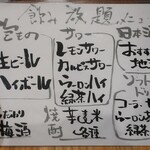 飲み放題メニュー
生ビール
ハイボール
梅酒
サワー
レモンサワー
カルピスサワー
ウーロンハイ
緑茶ハイ
焼酎
麦 米
各種
日本酒
おすすめ
地
ソフト
コーラ
ウーロン茶
緑茶